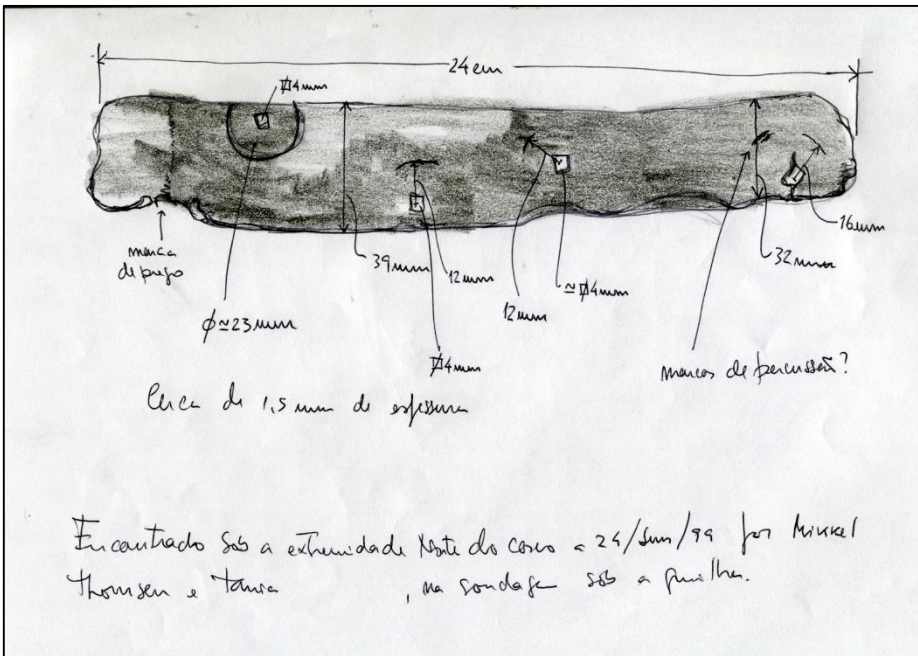 24 cm
⌀4mm
marca
de prego
39mm
12mm
12mm
≃⌀4mm
32mm
16mm
ϕ≃23mm
⌀4mm
marcas de percussão?
Cerca de 1,5 mm de espessura
Encontrado sob a extremidade Norte do casco a 24/Jun/99 por Mikkel
Thomsen e Tania , na sondagem sob a quilha.